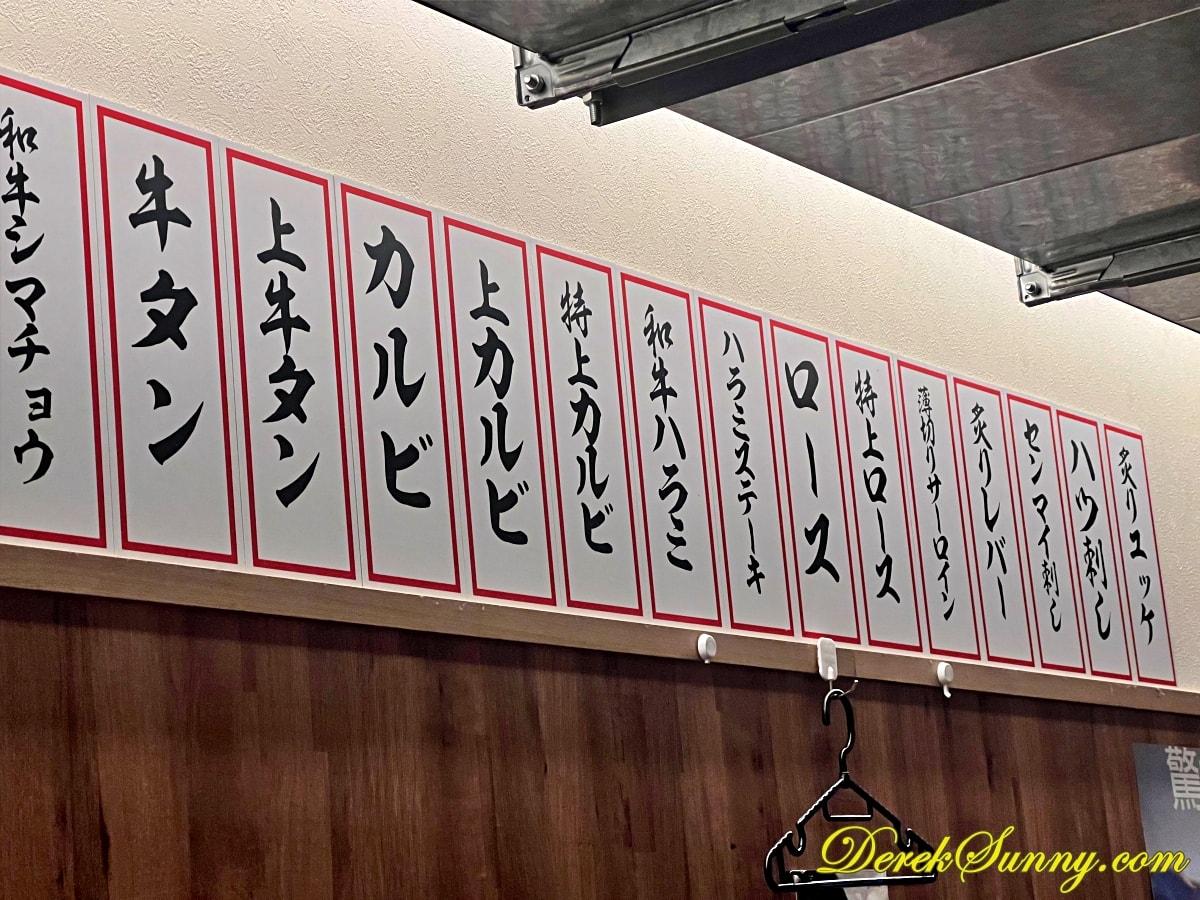 炙りユッケ
ハツ刺し
センマイ刺し
炙りレバー
薄切りサーロイン
特上ロース
ロース
ハラミステーキ
和牛ハラミ
特上カルビ
上カルビ
カルビ
上牛タン
牛タン
和牛シマチョウ
驚
DerekSunny.com